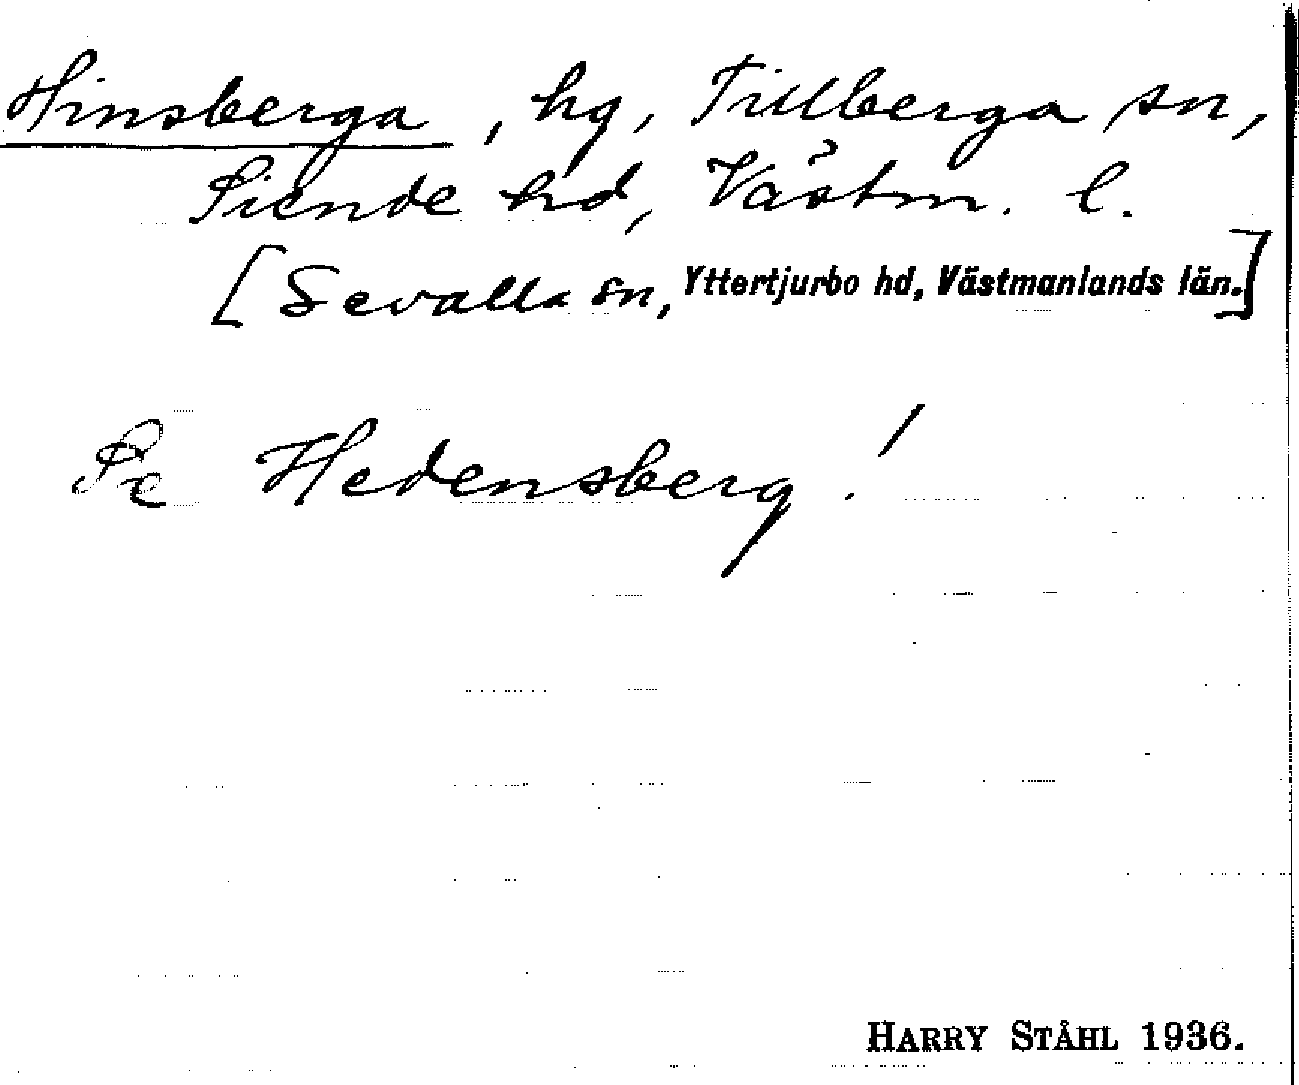 Hinsberga, hg, Tillberga sn,
Siende hd, Västm. l.
[Sevalla sn, Yttertjurbo hd, Västmanlands län.]
Se Hedensberg!
HARRY STÅHL 1936.